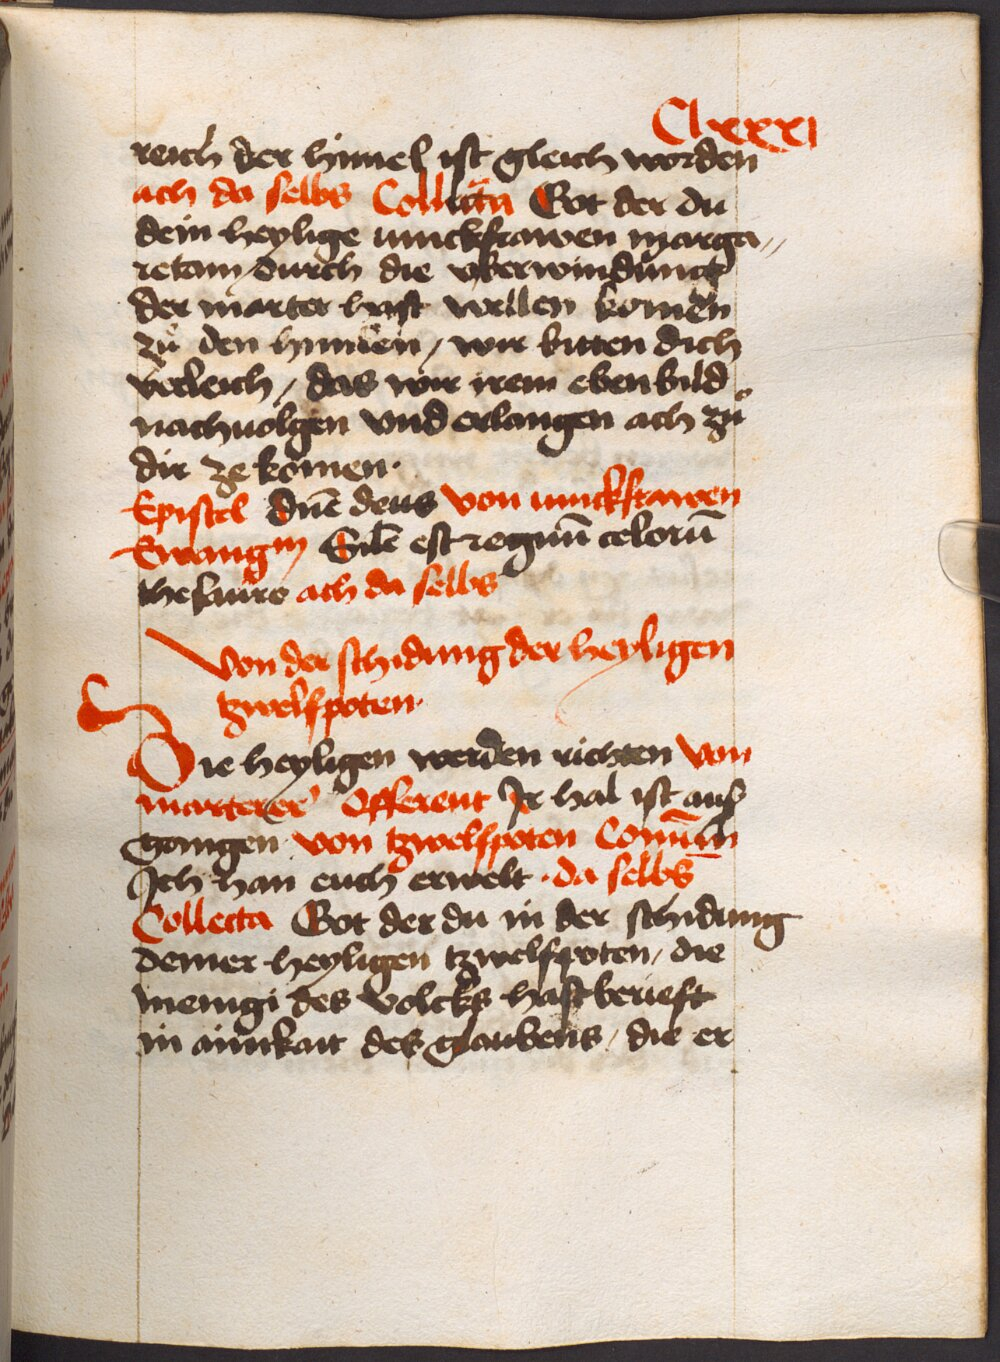 Clxxxi
reich der himel ist gleich worden
ach da selbs Collecta Got der du
dein heylige iunckfrawen marga„
retam durch die vberwindung
der marter hast wellen komen
zů den himlen / wir bitten dich
verleich / das wir irem ebenbild
nachuolgen vnd erlangen ach zů
dir ze komen.
Epistel Dnē deus von iunckfrawen
Ewangm Sile est regnū celorū
thesauro ach da selbs
Von der schidung der heyligen
tzwelfpoten.
Die heyligen werden richten von
marterer Offerent Ir hal ist auß
gangen von tzwelfpoten Comūn
Ich han euch erwelt . da selbs
Collecta Got der du in der schidung
deiner heyligen tzwelfpoten / die
menigi des volcks hast berieft
in ainikait des glaubens / die er